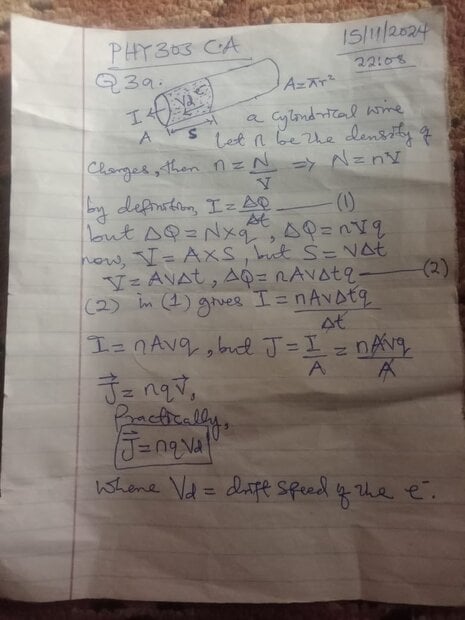 PHY 303 C.A
15/11/2024
22:08
Q 3a.
I Vd e⁻ A = πr²
A S a cylindrical wire
Let n be the density of
Charges, then n = N/V ⇒ N = nV
by definition, I = ΔQ/Δt ——— (1)
but ΔQ = N×q, ΔQ = nVq
now, V = A×S, but S = vΔt
V = AvΔt, ΔQ = nAvΔtq ——— (2)
(2) in (1) gives I = nAvΔtq/Δt
I = nAvq, but J = I/A = nAvq/A
J⃗ = nqv⃗,
Practically,
J⃗ = nqVd
where Vd = drift speed of the e⁻.